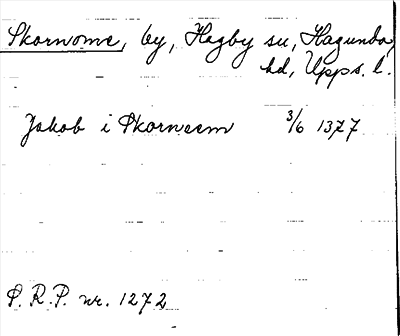 Skornome, by, Hagby sn, Hagunda
hd, Upps. l.
Jakob i Skorneem 3/6 1377
S. R. P. nr. 1272